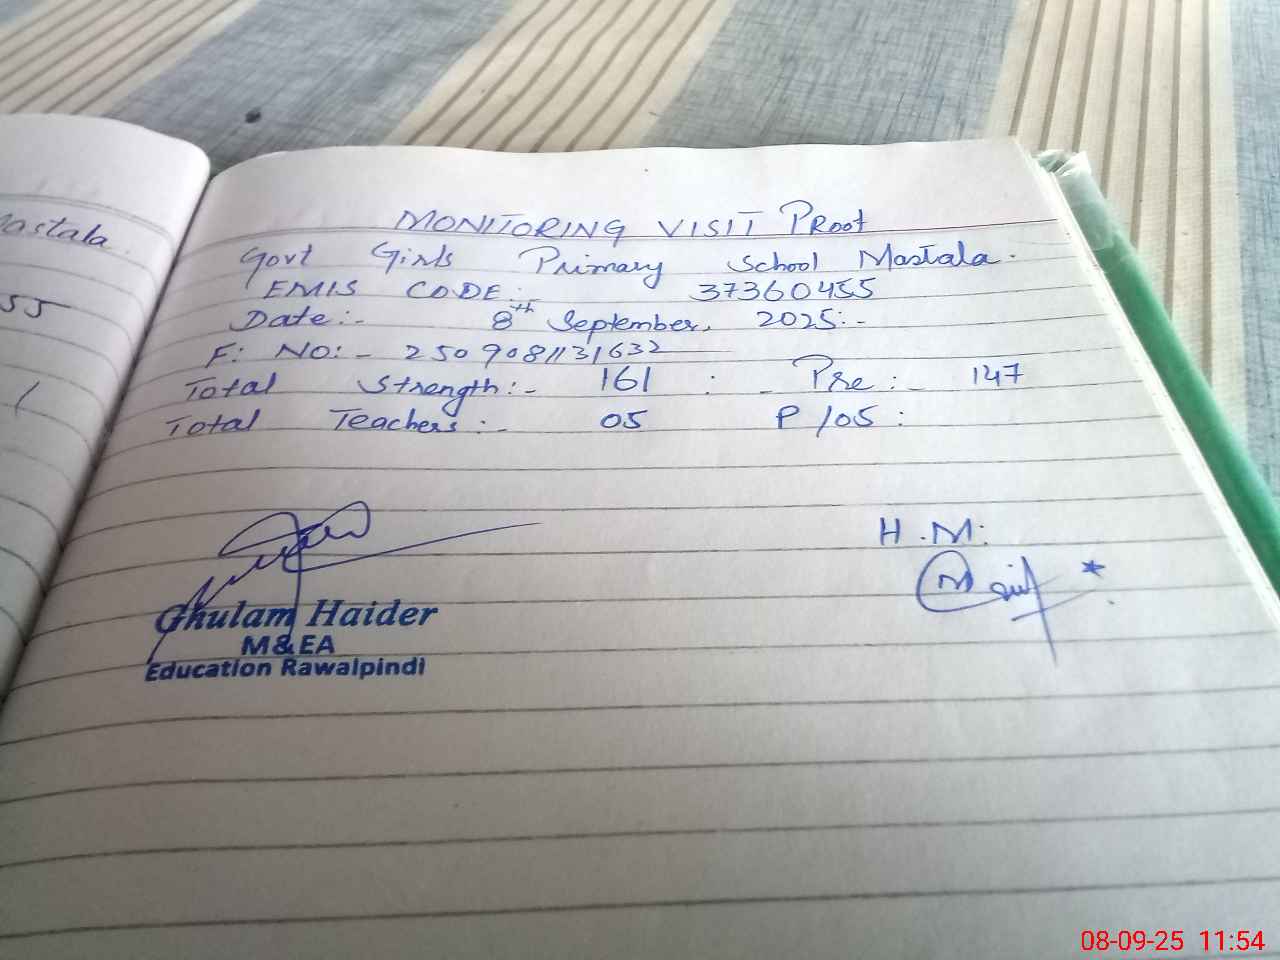 astala
55
1
MONITORING VISIT PRoof
Govt Girls Primary School Mastala.
EMIS CODE: 37360455
Date:- 8th September, 2025:-
F: NO:- 2509081131632
Total Strength:- 161 : - Pre:- 147
Total Teachers:- 05 P/05:
H.M:
Ghulam Haider
M&EA
Education Rawalpindi
08-09-25 11:54